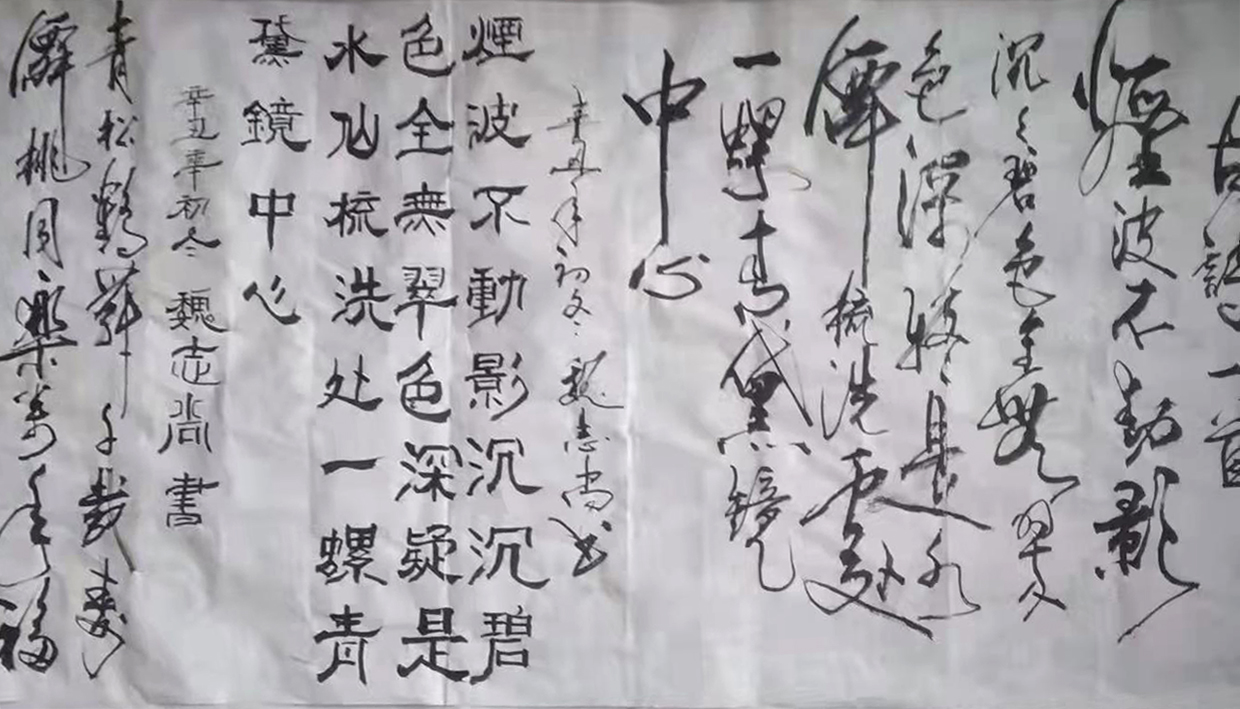 古詩一首
煙波不動影
沉々碧色全無翠
色深疑是水
僊梳洗處
一螺青黛鏡
中心
辛丑年初冬 魏志尚书
煙波不動影沉沉碧
色全無翠色深疑是
水仙梳洗处一螺青
黛鏡中心
辛丑年初冬 魏志尚書
青松鶴舞千載壽
僊桃同樂萬年福